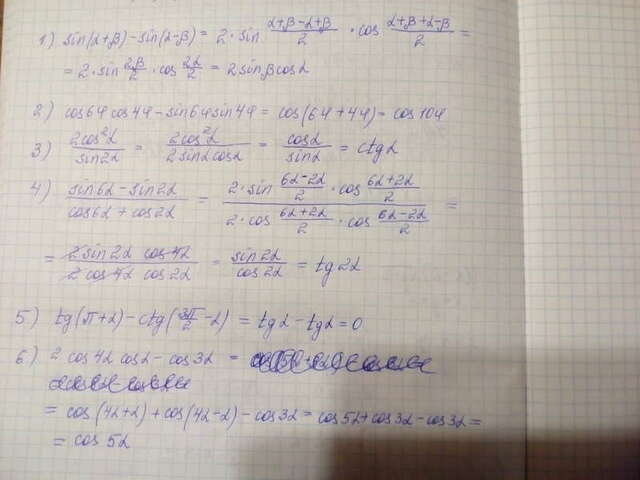 1) sin(α+β)-sin(α-β) = 2·sin (α+β-α+β)/2 · cos (α+β+α-β)/2 =
= 2·sin 2β/2 · cos 2α/2 = 2sinβcosα
2) cos6φ cos4φ - sin6φ sin4φ = cos(6φ+4φ) = cos10φ
3) 2cos²α/sin2α = 2cos²α/2sinαcosα = cosα/sinα = ctgα
4) (sin6α-sin2α)/(cos6α+cos2α) = (2·sin (6α-2α)/2 · cos (6α+2α)/2)/(2·cos (6α+2α)/2 · cos (6α-2α)/2) =
= (2 sin2α cos4α)/(2 cos4α cos2α) = sin2α/cos2α = tg2α
5) tg(π+α)-ctg(3π/2-α) = tgα-tgα=0
6) 2 cos4α cosα - cos3α =
= cos(4α+α)+cos(4α-α)-cos3α = cos5α+cos3α-cos3α =
= cos5α